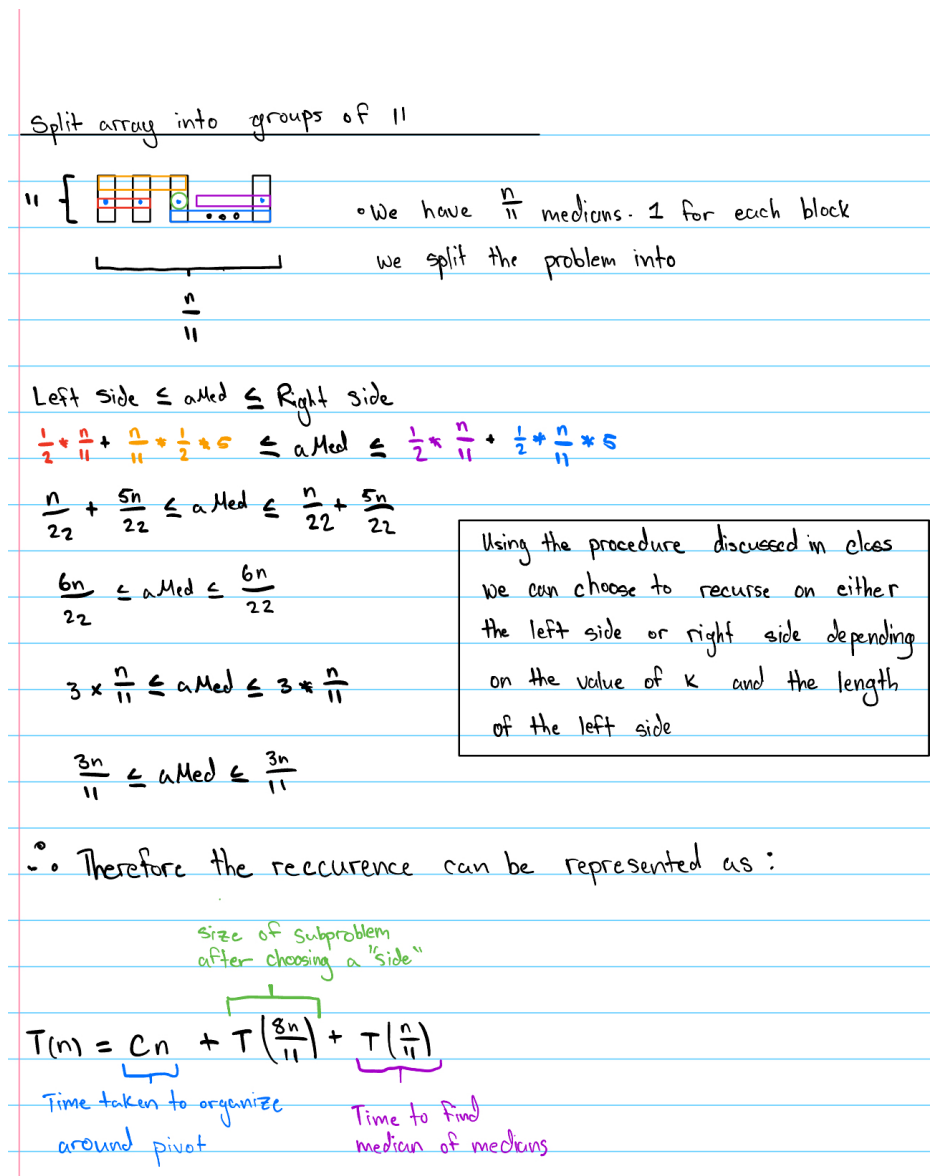 Split array into groups of 11
11 {
• We have n/11 medians. 1 for each block
we split the problem into
n/11
Left side ≤ aMed ≤ Right side
1/2 * n/11 + n/11 * 1/2 * 5 ≤ a Med ≤ 1/2 * n/11 + 1/2 * n/11 * 5
n/22 + 5n/22 ≤ a Med ≤ n/22 + 5n/22
6n/22 ≤ a Med ≤ 6n/22
3 × n/11 ≤ a Med ≤ 3 * n/11
3n/11 ≤ a Med ≤ 3n/11
Using the procedure discussed in class
we can choose to recurse on either
the left side or right side depending
on the value of K and the length
of the left side
∴ Therefore the reccurence can be represented as :
size of subproblem
after choosing a "side"
T(n) = Cn + T(8n/11) + T(n/11)
Time taken to organize
around pivot
Time to find
median of medians